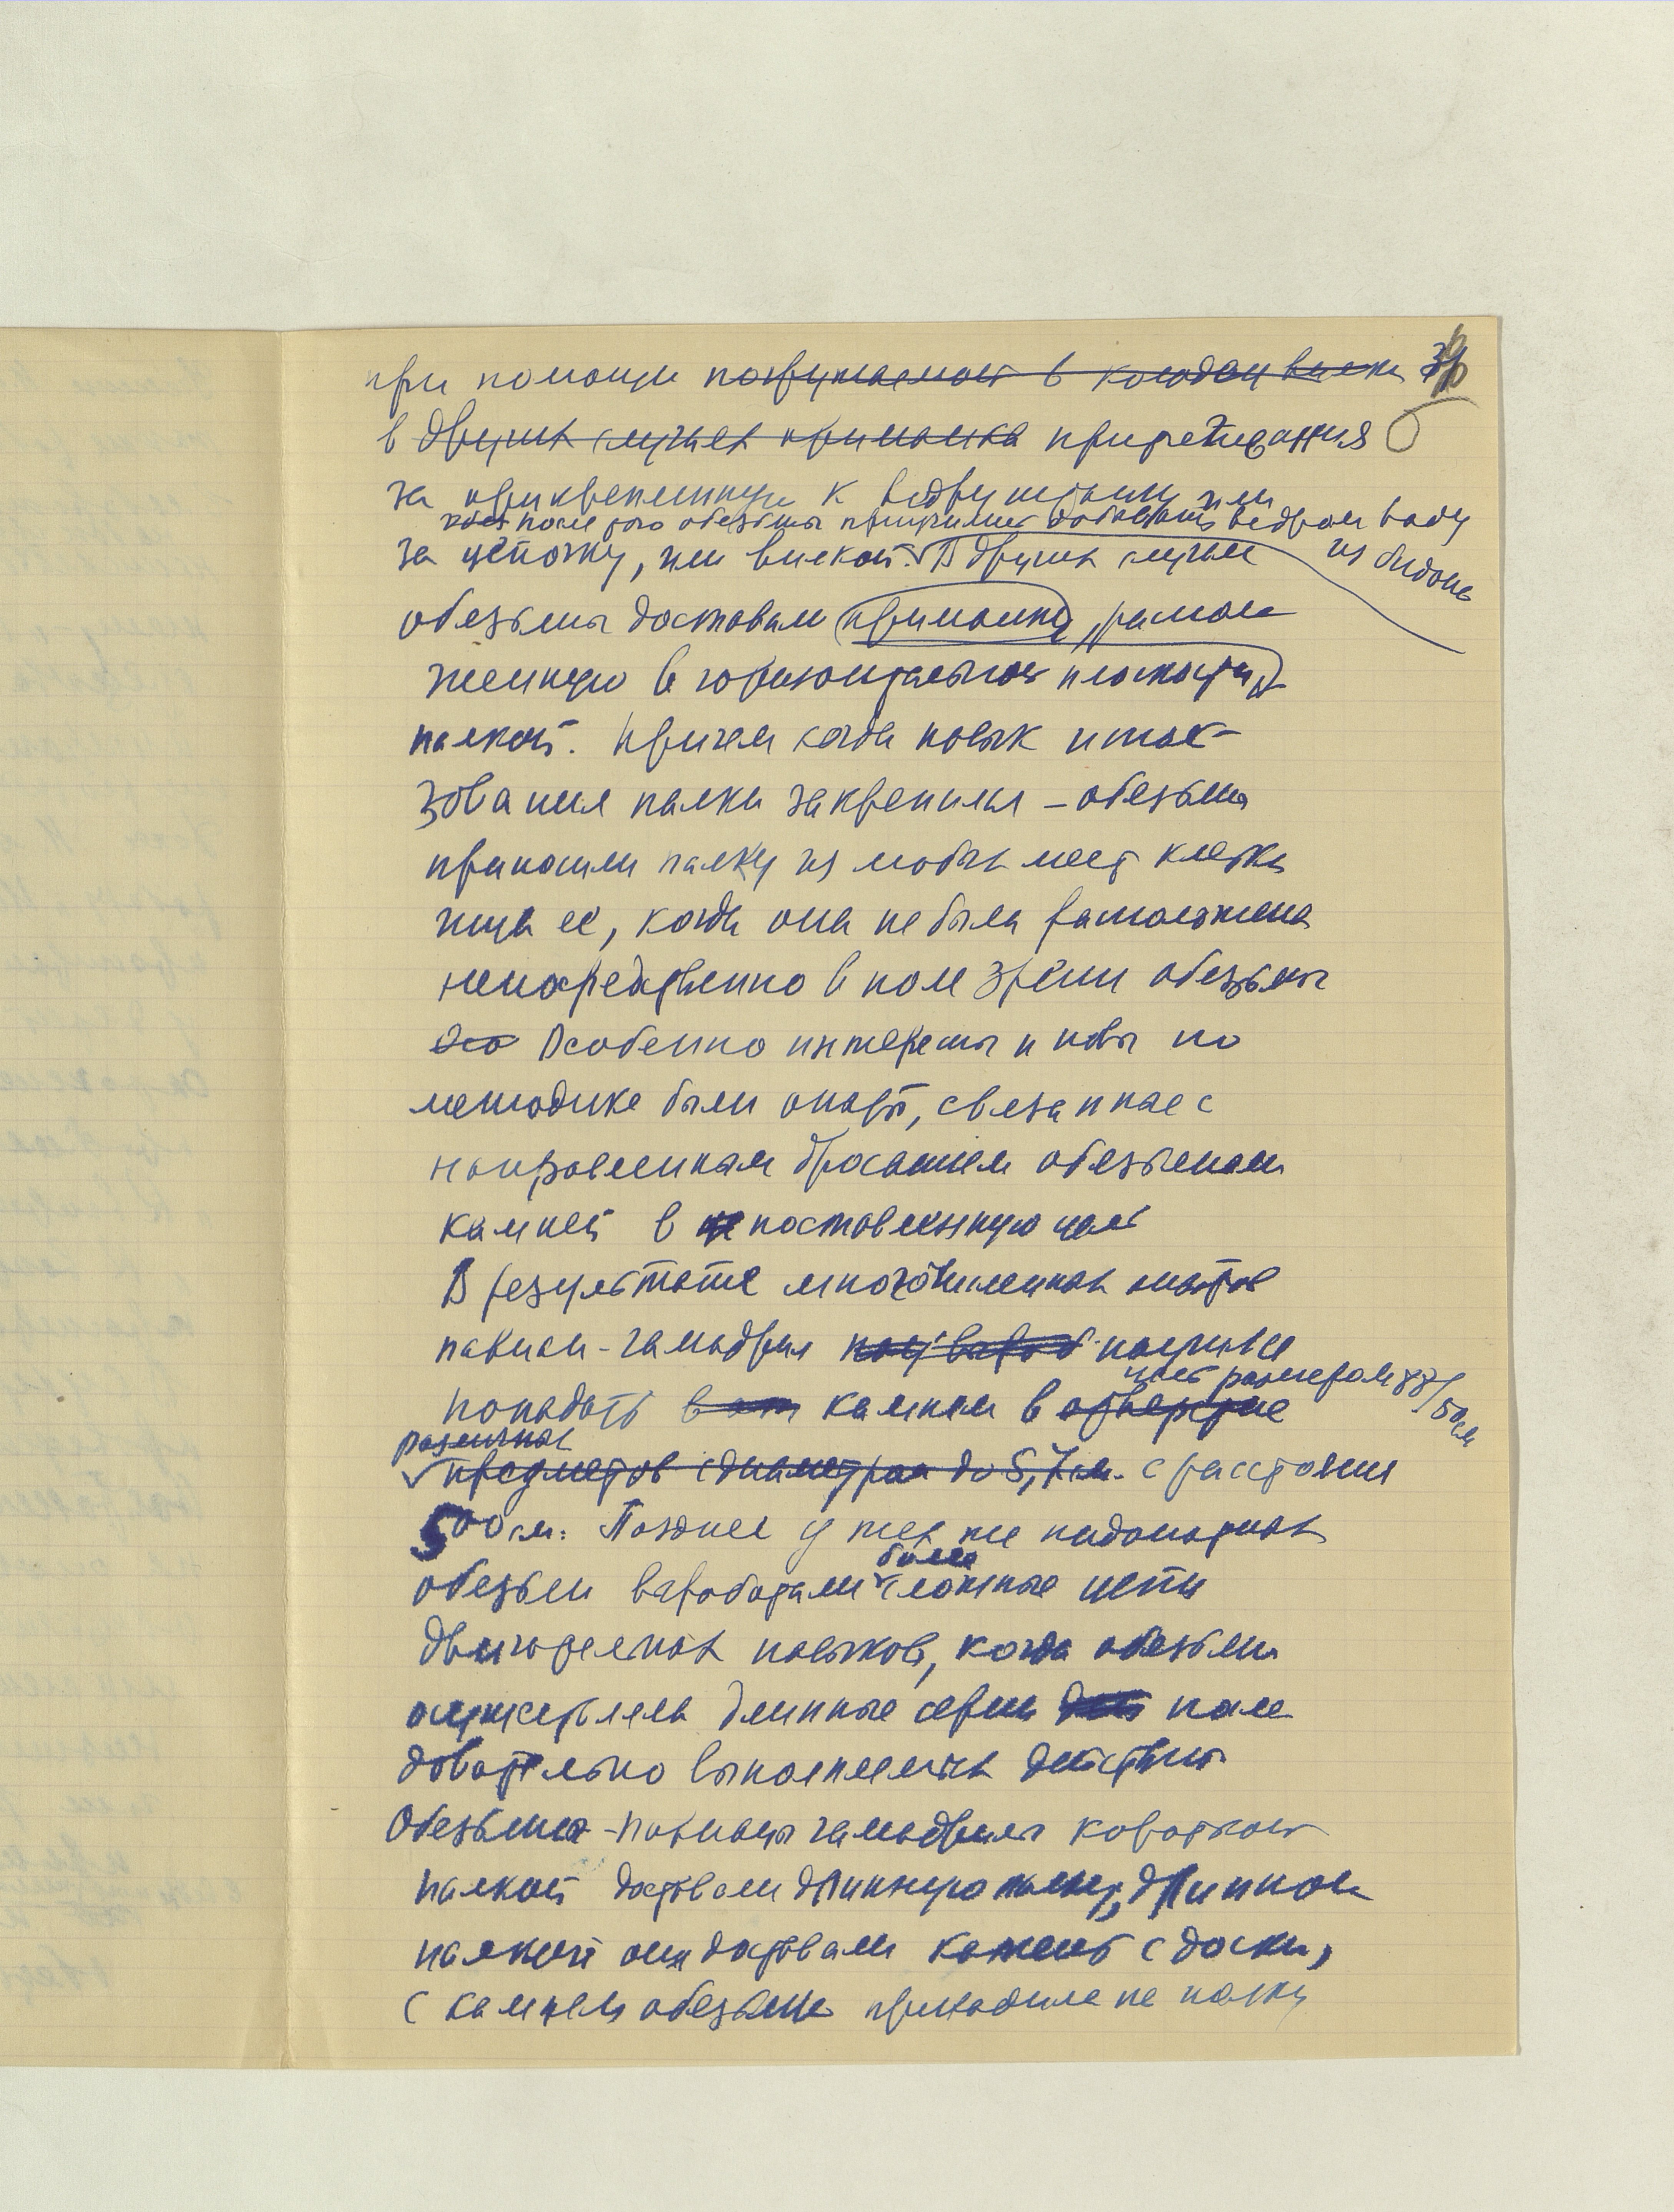 при помощи погружаемой в колодец вилки
в других случаях приманка притягивания
за прикрепленную к ведру или
после того обезьяны приучились добывать ведром воду
из бидона
за цепочку, или вилкой. В других случаях
обезьяны доставали приманку, распол
женную в горизонтальной плоскости,
палкой. Причем когда навык исполь-
зования палки закрепился – обезьяна
приносили палку из любых мест клетки
ища ее, когда она не была расположена
непосредственно в поле зрения обезьяны
Особенно интересны и новы по
методике были опыты, связанные с
направленным бросанием обезьянами
камней в поставленную цель
В результате многочисленных опытов
павиан-гамадрил научился
цель размером 88/50 см
попадать камнем в отверстие
различных
предметов с диаметром до 5,7 см. с расстояния
500 см. Позднее у тех же подопытных
более
обезьян вырабатали сложные цепи
двигательных навыков, когда обезьяны
осуществляли длинные серии после
довательно выполняемых действий
Обезьяны - павианы гамадрилы короткой
палкой доставали длинную палку, длинной
палкой они доставали камень с доски,
с камнем обезьяна приходила на полку